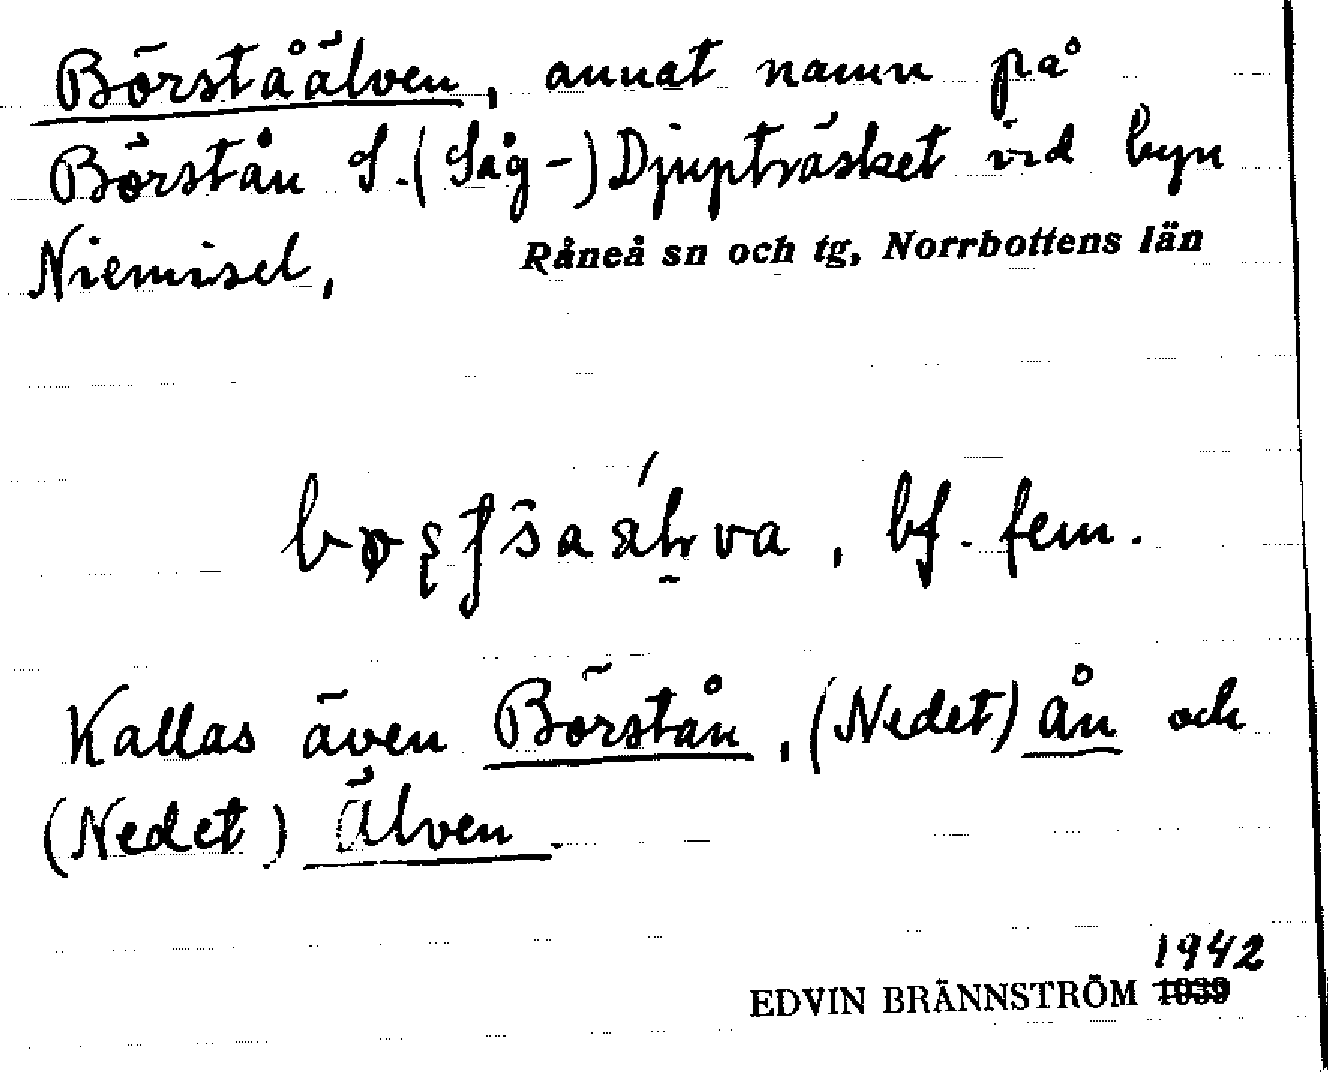 Börståälven, annat namn på
Börstån S. (Såg-) Djupträsket vid byn
Niemisel, Råneå sn och tg, Norrbottens län
bf. fem.
Kallas även Börstån, (Nedet) ån och
(Nedet) Älven.
1942
EDVIN BRÄNNSTRÖM 1939